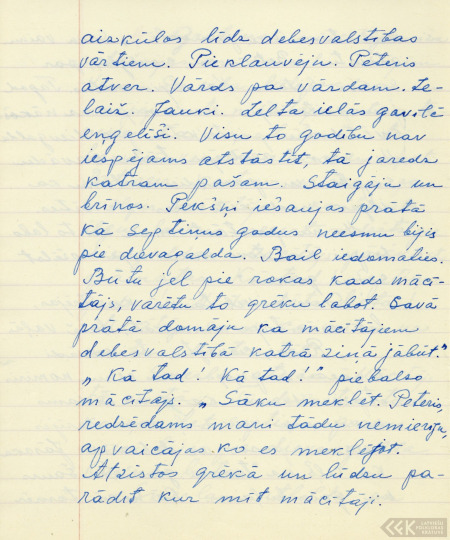 aizkūlos līdz debesvalstības
vārtiem. Pieklauvēju. Pēteris
atver. Vārds pa vārdam. Ie-
laiž. Jauki. Zelta ielās gavilē
eņģelīši. Visu to godību nav
iespējams atstāstīt, tā jāredz
katram pašam. Staigāju un
brīnos. Pēkšņi iešaujas prātā
kā septiņus gadus neesmu bijis
pie dievgalda. Bail iedomāties.
Būtu jel pie rokas kāds mācī-
tājs, varētu to grēku labot. Savā
prātā domāju ka mācītājiem
debesvalstībā katrā ziņā jābūt."
„Kā tad! Kā tad!" piebalso
mācītājs. „Sāku meklēt. Pēteris,
redzēdams mani tādu nemierīgu,
apvaicājas ko es meklējot.
Atzistos grēkā un lūdzu pa-
rādīt kur mīt mācītāji.
LATVIEŠU
FOLKLORAS
KRĀTUVE